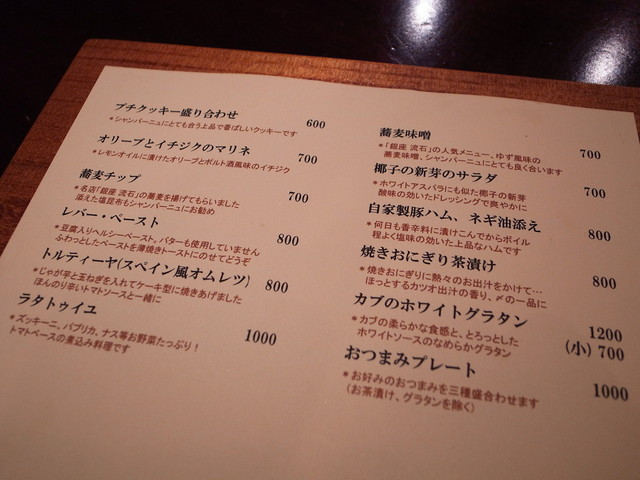 プチクッキー盛り合わせ 600
*シャンパーニュにとても合う上品で香ばしいクッキーです
オリーブとイチジクのマリネ 700
*レモンオイルに漬けたオリーブとポルト酒風味のイチジク
蕎麦チップ 700
*名店「銀座 流石」の蕎麦を揚げてもらいました
添えた塩昆布もシャンパーニュにお勧め
レバー・ペースト 800
*豆腐入りヘルシーペースト。バターも使用していません
ふわっとしたペーストを薄焼きトーストにのせてどうぞ
トルティーヤ(スペイン風オムレツ) 800
*じゃが芋と玉ねぎを入れてケーキ型に焼きあげました
ほんのり辛いトマトソースと一緒に
ラタトゥイユ 1000
*ズッキーニ、パプリカ、ナス等お野菜たっぷり!
トマトベースの煮込み料理です
蕎麦味噌 700
*「銀座 流石」の人気メニュー。ゆず風味の
蕎麦味噌、シャンパーニュにとても良く合います
椰子の新芽のサラダ 700
*ホワイトアスパラにも似た椰子の新芽
酸味の効いたドレッシングで爽やかに
自家製豚ハム、ネギ油添え 800
*何日も香辛料に漬けこんでからボイル
程よく塩味の効いた上品なハムです
焼きおにぎり茶漬け 800
*焼きおにぎりに熱々のお出汁をかけて…
ほっとするカツオ出汁の香り、〆の一品に
カブのホワイトグラタン 1200
*カブの柔らかな食感と、とろっとした (小) 700
ホワイトソースのなめらかグラタン
おつまみプレート 1000
*お好みのおつまみを三種盛合わせます
(お茶漬け、グラタンを除く)